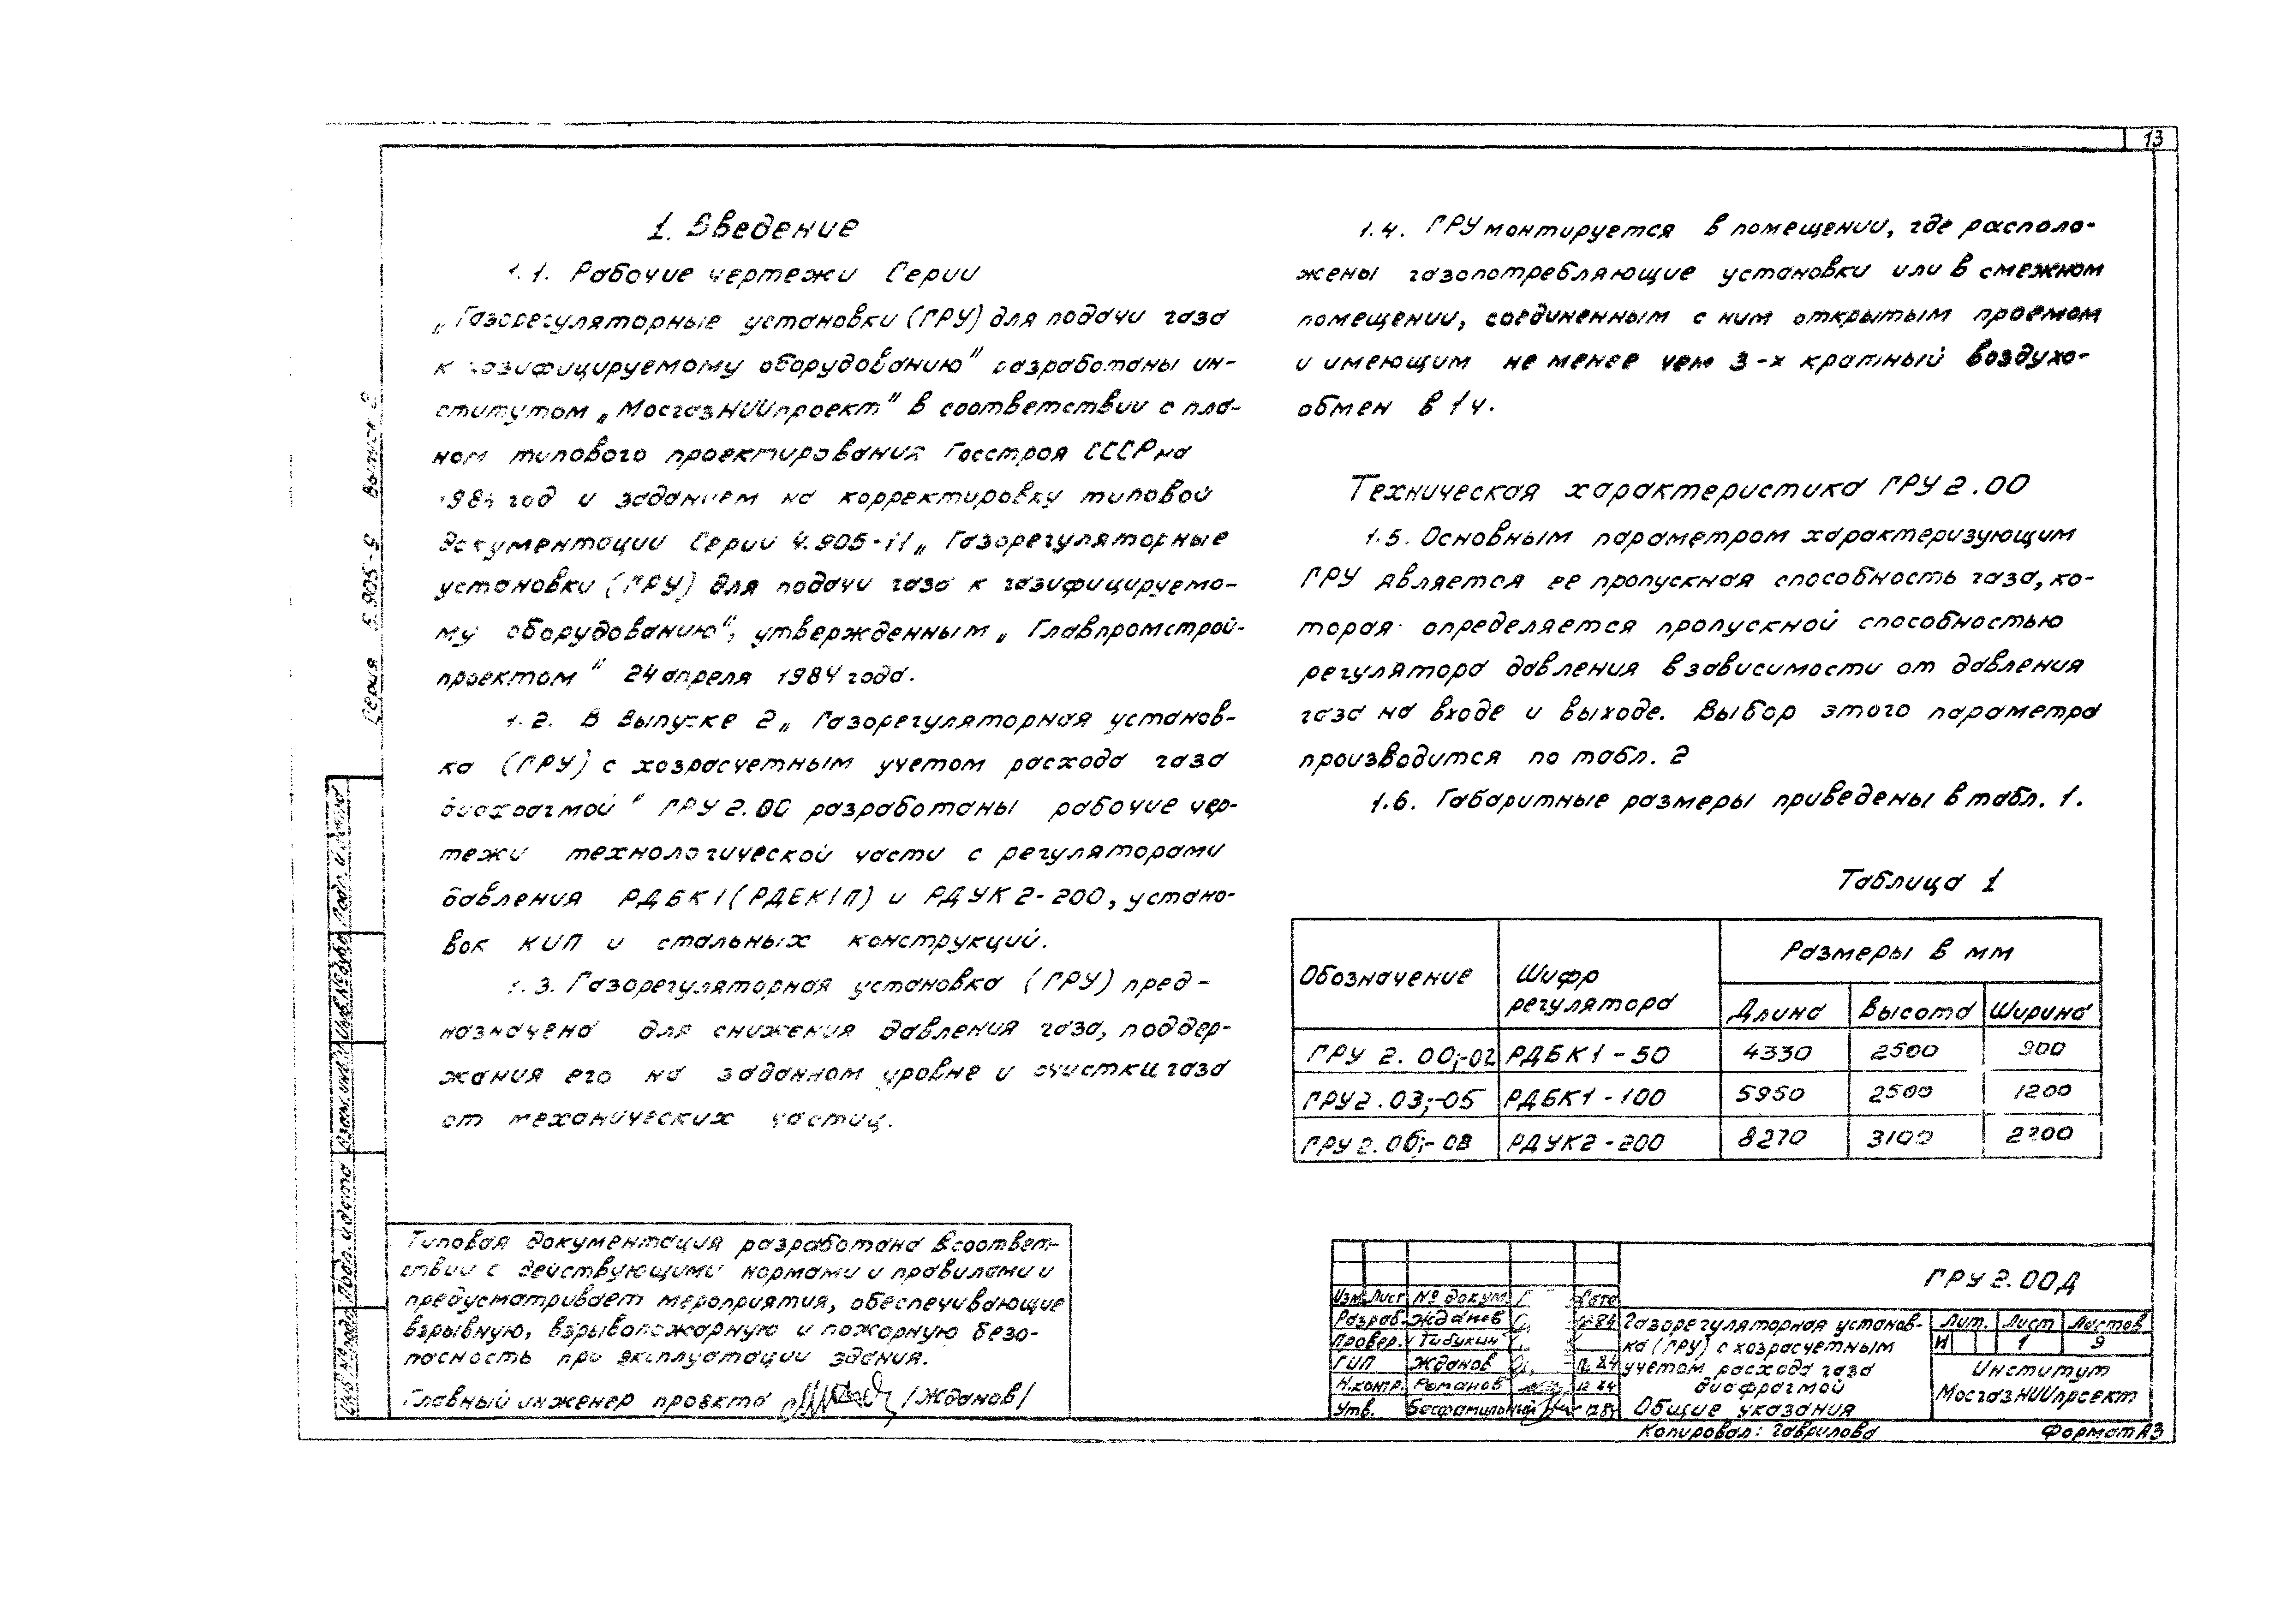 13
1. Введение
1.1. Рабочие чертежи Серии
„Газорегуляторные установки (ГРУ) для подачи газа
к газифицируемому оборудованию" разработаны ин-
ститутом „МосгазНИИпроект" в соответствии с пла-
ном типового проектирования Госстроя СССР на
год и заданием на корректировку типовой
документации Серии 4.905-11 „Газорегуляторные
установки (ГРУ) для подачи газа к газифицируемо-
му оборудованию", утвержденным „Главпромстрой-
проектом" 24 апреля 1984 года.
1.2. В Выпуске 2 „Газорегуляторная установ-
ка (ГРУ) с хозрасчетным учетом расхода газа
диафрагмой" ГРУ 2.00 разработаны рабочие чер-
тежи технологической части с регуляторами
давления РДБК1(РДБК1П) и РДУК2-200, устано-
вок КИП и стальных конструкций.
1.3. Газорегуляторная установка (ГРУ) пред-
назначена для снижения давления газа, поддер-
жания его на заданном уровне и очистки газа
от механических частиц.
1.4. ГРУ монтируется в помещении, где располо-
жены газопотребляющие установки или в смежном
помещении, соединенным с ним открытым проемом
и имеющим не менее чем 3-х кратный воздухо-
обмен в 1ч.
Техническая характеристика ГРУ 2.00
1.5. Основным параметром характеризующим
ГРУ является ее пропускная способность газа, ко-
торая определяется пропускной способностью
регулятора давления в зависимости от давления
газа на входе и выходе. Выбор этого параметра
производится по табл. 2
1.6. Габаритные размеры приведены в табл. 1.
Таблица 1
Обозначение Шифр регулятора Размеры в мм
Длина Высота Ширина
ГРУ 2.00;-02 РДБК1-50 4330 2500 900
ГРУ 2.03;-05 РДБК1-100 5950 2500 1200
ГРУ 2.06;-08 РДУК2-200 8270 3100 2200
Серия 5.905-9 Выпуск 2
Инв.№подл. Подп. и дата Взам.инв.№ Инв.№дубл. Подп. и дата
Типовая документация разработана в соответ-
ствии с действующими нормами и правилами и
предусматривает мероприятия, обеспечивающие
взрывную, взрывопожарную и пожарную безо-
пасность при эксплуатации здания.
Главный инженер проекта /Жданов/
ГРУ 2.00Д
Изм. Лист № докум. Дата
Разраб. Жданов 12.84
Провер. Тибукин
ГИП Жданов 12.84
Н.контр. Романов 12.84
Утв. Бесфамильный 12.84
Газорегуляторная установ-
ка (ГРУ) с хозрасчетным
учетом расхода газа
диафрагмой
Общие указания
Лит. Лист Листов
И 1 9
Институт
МосгазНИИпроект
Копировал: Гаврилова
Формат А3